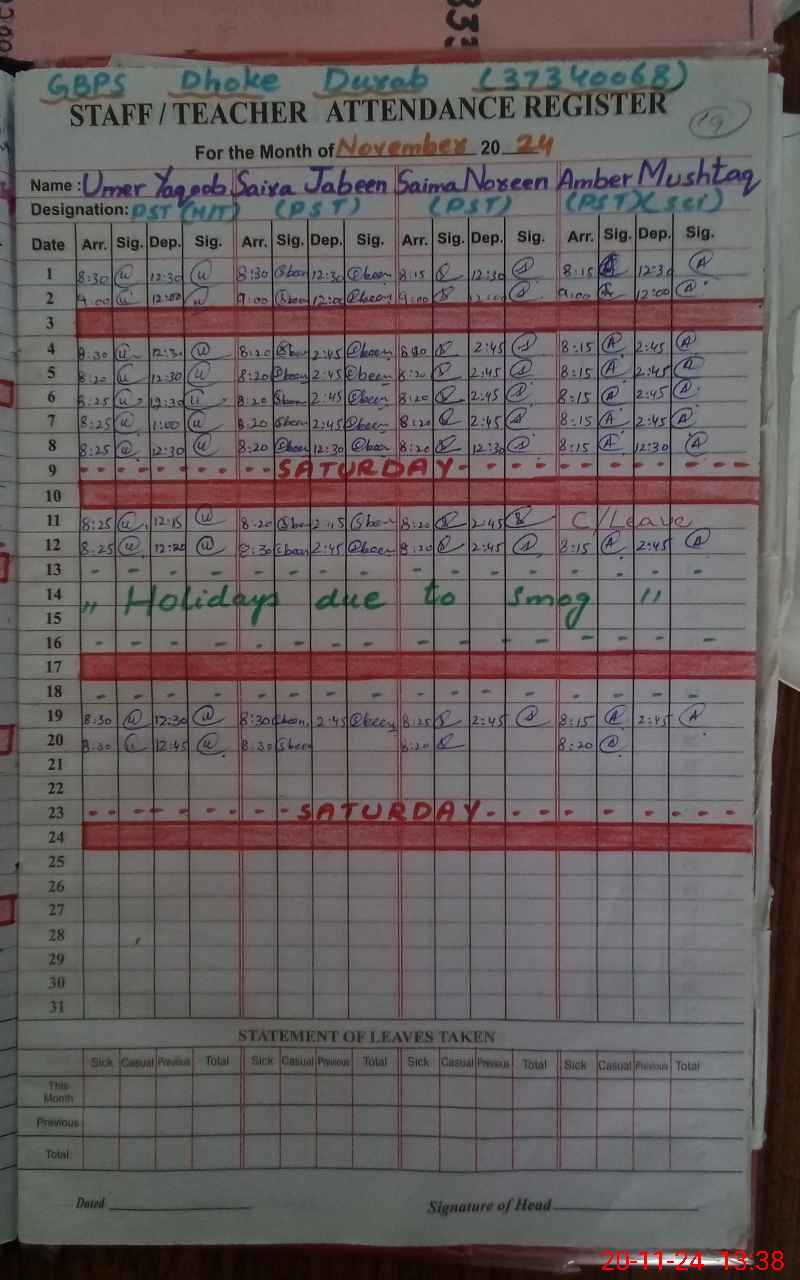 GBPS Dhoke Durab (37340068)
STAFF / TEACHER ATTENDANCE REGISTER
19
For the Month of November 2024
Name : Umer Yaqoob Saira Jabeen Saima Noreen Amber Mushtaq
Designation: PST (H/T) (PST) (PST) (PST)(Sci)
Date Arr. Sig. Dep. Sig. Arr. Sig. Dep. Sig. Arr. Sig. Dep. Sig. Arr. Sig. Dep. Sig.
1 8:30 12:30 8:30 12:30 8:15 12:30 8:15 12:30
2 9:00 12:00 9:00 12:00 9:00 12:00 9:00 12:00
3
4 8:30 12:30 8:20 2:45 8:20 2:45 8:15 2:45
5 8:20 12:30 8:20 2:45 8:20 2:45 8:15 2:45
6 8:25 12:30 8:20 2:45 8:20 2:45 8:15 2:45
7 8:25 1:00 8:20 2:45 8:20 2:45 8:15 2:45
8 8:25 12:30 8:20 12:30 8:20 12:30 8:15 12:30
9 SATURDAY
10
11 8:25 12:15 8:20 2:45 8:20 2:45 C/Leave
12 8:25 12:20 8:30 2:45 8:20 2:45 8:15 2:45
13
14 " Holidays due to smog "
15
16
17
18
19 8:30 12:30 8:30 2:45 8:25 2:45 8:15 2:45
20 8:30 12:45 8:30 8:20 8:20
21
22
23 SATURDAY
24
25
26
27
28
29
30
31
STATEMENT OF LEAVES TAKEN
Sick Casual Previous Total Sick Casual Previous Total Sick Casual Previous Total Sick Casual Previous Total
This Month
Previous
Total
Dated
Signature of Head
20-11-24 13:38